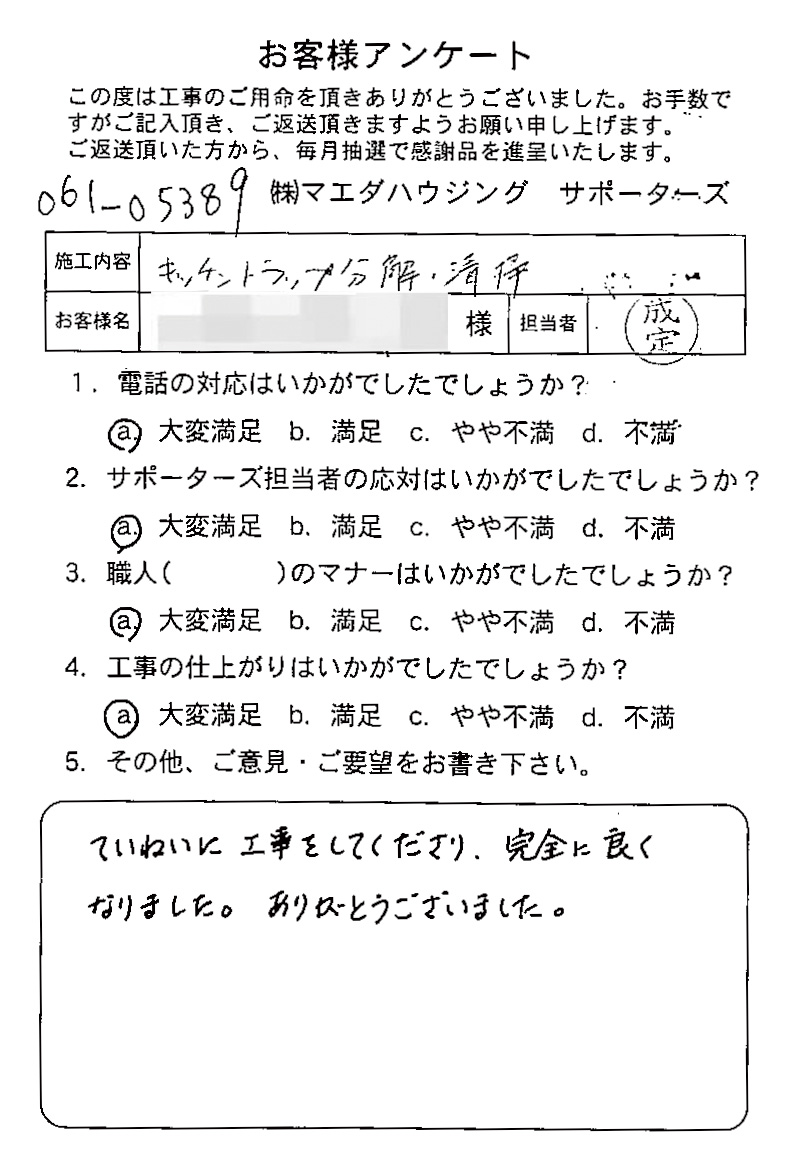 お客様アンケート
この度は工事のご用命を頂きありがとうございました。お手数で
すがご記入頂き、ご返送頂きますようお願い申し上げます。
ご返送頂いた方から、毎月抽選で感謝品を進呈いたします。
061-05389 ㈱マエダハウジング サポーターズ
施工内容 キッチントラップ分解・清掃
お客様名 様 担当者 成定
1. 電話の対応はいかがでしたでしょうか？
a. 大変満足 b. 満足 c. やや不満 d. 不満
2. サポーターズ担当者の応対はいかがでしたでしょうか？
a. 大変満足 b. 満足 c. やや不満 d. 不満
3. 職人( )のマナーはいかがでしたでしょうか？
a. 大変満足 b. 満足 c. やや不満 d. 不満
4. 工事の仕上がりはいかがでしたでしょうか？
a 大変満足 b. 満足 c. やや不満 d. 不満
5. その他、ご意見・ご要望をお書き下さい。
ていねいに工事をしてくださり、完全に良く
なりました。ありがとうございました。